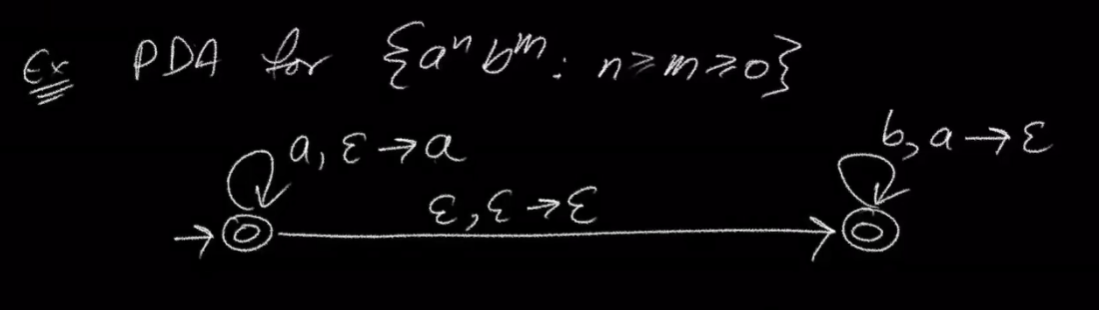 Ex PDA for {aⁿ bᵐ : n ≥ m ≥ 0}
a, ε → a
b, a → ε
ε, ε → ε